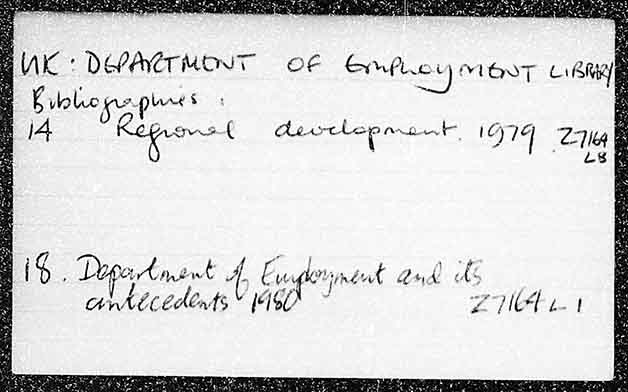 UK: DEPARTMENT OF EMPLOYMENT LIBRARY
Bibliographies:
14 Regional development. 1979 Z7164
L8
18. Department of Employment and its
antecedents 1980 Z7164 L1